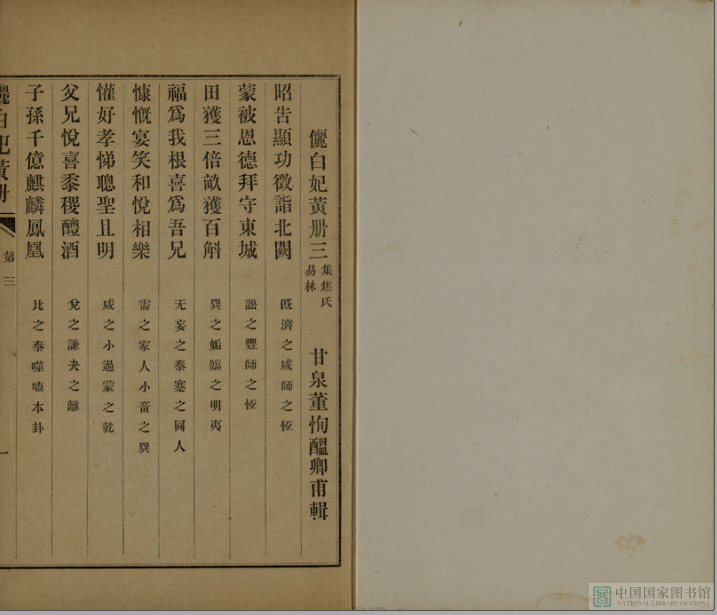 儷白妃黃册三 集焦氏易林 甘泉董恂醞卿甫輯
昭告顯功徵詣北闕 旣濟之咸師之恆
蒙被恩德拜守東城 訟之豐師之恆
田獲三倍畝獲百斛 巽之姤臨之明夷
福爲我根喜爲吾兄 无妄之泰蹇之同人
慷慨宴笑和悅相樂 需之家人小畜之巽
懽好孝悌聰聖且明 咸之小過蒙之乾
父兄悅喜黍稷醴酒 兌之謙夬之離
子孫千億麒麟鳳凰 比之泰噬嗑本卦
儷白妃黃册 第三 一
中国国家图书馆
NATIONAL LIBRARY OF CHINA